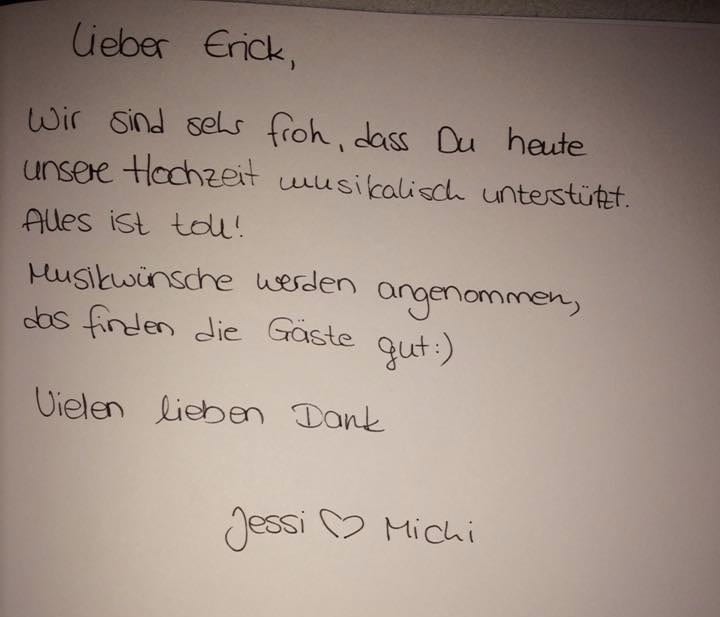 Lieber Erick,
Wir sind sehr froh, dass Du heute
unsere Hochzeit musikalisch unterstützt.
Alles ist toll!
Musikwünsche werden angenommen,
das finden die Gäste gut:)
Vielen lieben Dank
Jessi ♡ Michi